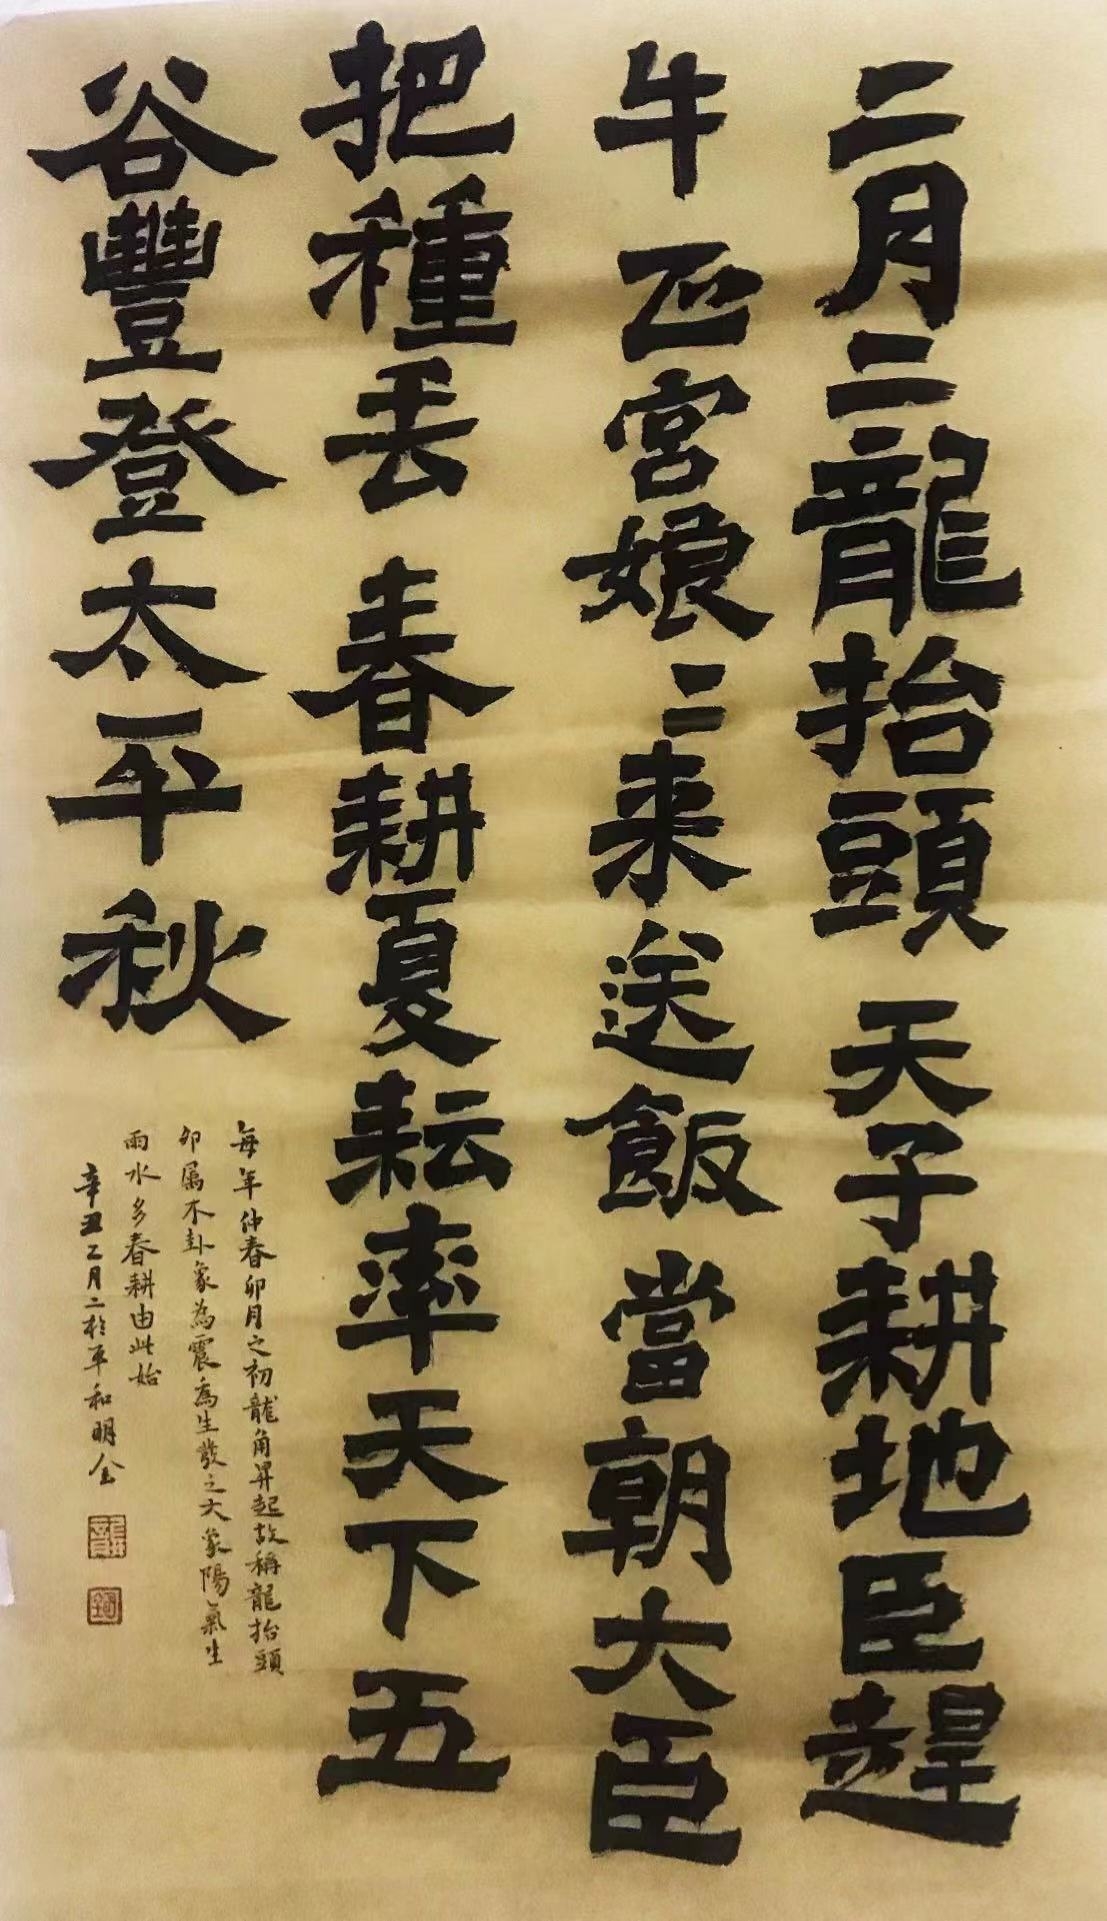 二月二龍抬頭 天子耕地臣趕
牛 正宮娘〻來送飯 當朝大臣
把種丟 春耕夏耘率天下 五
谷豐登太平秋
每年仲春卯月之初龍角昇起故稱龍抬頭
卯屬木卦象為震為生發之大象陽氣生
雨水多春耕由此始
辛丑乙月二於平和明金